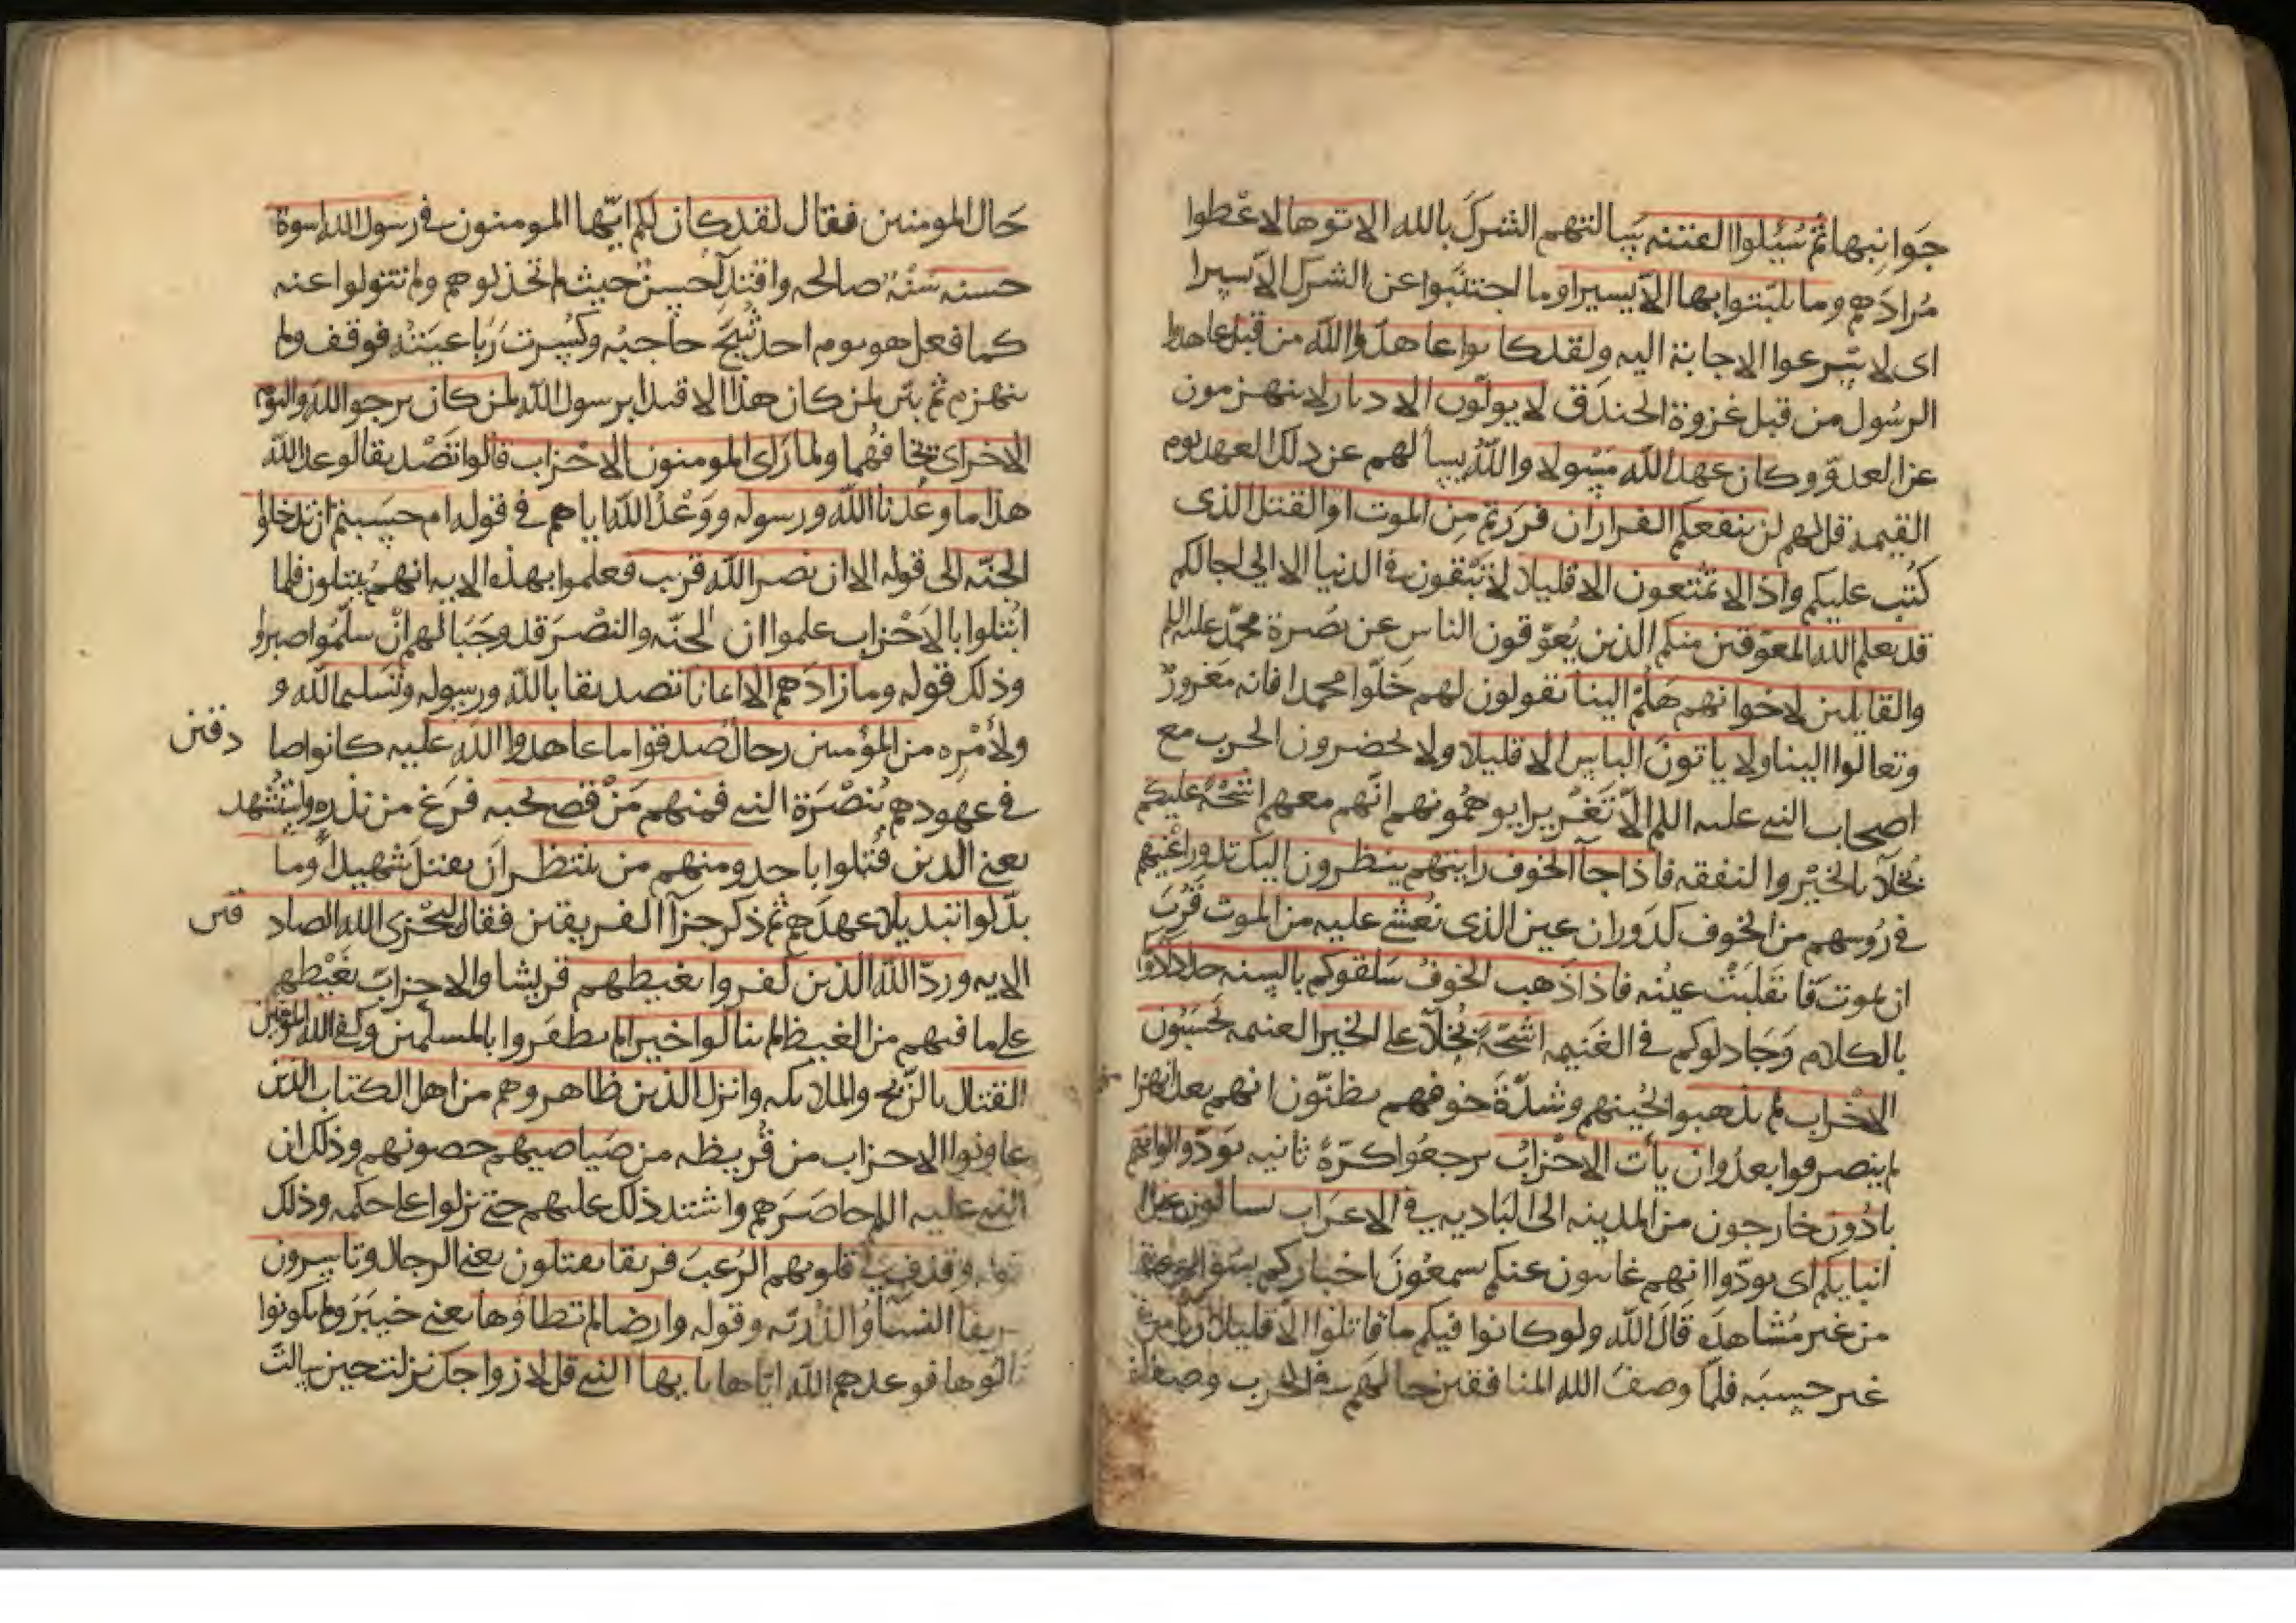 جَوانِبها ثم سُيُلوا الفتنه يَسالتهم الشركَ بالله الاتوها لاعْطوا
مُرادَهم وما تلبّثوا بها الاّ يسيرا وما احتبَسوا عن الشرك الاّ يسيرا
اى لاسْرعوا الاجابة اليه ولقد كانوا عاهدُوا اللّه من قبل عاهدوا
الرسُول من قبل غزوة الخندق لا يولّون الادبار لا ينهزمون
عن العدوّ وكان عهد اللّه مَسْولا واللّهُ يسألهم عن ذلك العهد يوم
القيمة قل لهم لن ينفعكم الفرار ان فررتم مِن الموت او القتل الذى
كُتب عليكم واذا لا تمتّعون الا قليلا لا تَبْقون فى الدنيا الا الى اجالكم
قد يعلم الله المعوّقين منكم الذين يُعوّقون الناس عن نصرة محمّد عليه السلم
والقايلين لاخوانهم هَلمّ الينا يقولون لهم خَلّوا محمدا فانه مَغرورٌ
وتعالوا الينا ولا ياتونَ الباس الا قليلا ولا يحضرون الحرب مع
اصحاب النبى عليه السلم الاّ تَغْريرا يوهمُونهم انّهم معهم اشحّةً عليكم
بُخلآَ بالخيْر والنفقه فاذا جآ الخوف رايتهم ينظرون اليك تدور اعْينهم
فى رُوسهم من الخوف كدَوران عين الذى يُغشى عليه من الموت قَرُبَ
ان يموت فانقَلَبَتْ عينُه فاذا ذَهب الخوفُ سَلقوكم بالسنه حداد اذوكم
بالكلام وَجَادلوكم فى الغَنيمه اشحّةً بُخلآَ على الخير الغنيمه يَحسَبُون
الاحْزاب لم يذهبوا لجُبنهم وشدّة خوفهم يظنّون انهم بعد انهزامهم
لم ينصرفوا بعدُ وان يأت الاحْزابُ يرجعُوا كرّةً ثانيه يَودّوا لو انهم
بادُون خارجون من المدينه الى البَاديه فى الاعرَاب يسالون عن
انبايكم اى يودّوا انهم غايبون عنكم يسمعُونَ اخباركم
من غير مُشاهدَه قَالَ اللّه ولو كانوا فيكم ما قاتلوا الاّ قليلا رياً من
غير حسبَه فلمّا وصفَ الله المنافقين حالهم فى الحرب وصف
حَال المومنين فقال لقد كان لكم ايّها المومنون فى رسول الله اسوة
حسنه سُنّةٌ صالحه واقتدآ حَسنٌ حيث لم تخذلوهم ولم تتولوا عنه
كما فعل هو يوم احد شُجّ حاجبُه وكُسِرت رَباعيَتُه فوقف ولم
ينهزم ثم بيّن لمن كان هذا الاقتدا برسول اللّه لمن كان يرجوا اللّه واليوم
الاخر اى يخافهُما ولما رَاى المومنون الاحْزاب قالوا تَصْديقا لوعد اللّه
هذا ما وعَدنا اللّه ورسوله ووَعْدُ اللّه اياهم فى قوله ام حسبتم ان تدخلوا
الجنّه الى قوله الا ان نصر اللّه قريب فعلموا بهذه الايه انهم يُبتلون فلما
ابتُلوا بالاَحْزاب علموا ان الجنّه والنصْرَ قد وجَبَا لهم انْ سلّمُوا وصبروا
وذلك قوله وما زادَهم الا ايمانا تصديقا باللّه ورسوله وتَسليما للّه و
ولأمْرِه من المؤمنين رجالٌ صَدقوا ما عاهدوا اللّه عليه كانوا صا دقين
فى عهودهم بُنصْرَة النبى فمنهم مَنْ قضى نحبه فَرَغ من نذره واستُشهد
يعنى الذين قُتلوا باحد ومنهم من ينتظر ان يقتلَ شهيداً وما
بدّلوا تبديلا عهدَهم ثم ذكر جزآ الفريقين فقال ليَجْزى اللّه الصاد قين
الايه وردّ اللّه الذين كفروا بغيظهم قريشا والاحزابَ بغَيْظهم
على ما فيهم من الغيظ لم ينالوا خيرا لم يظفَروا بالمسلمين وكفى الله المومنين
القتال بالرّيح والملايكه وانزل الذين ظاهروهم من اهل الكتاب الذين
عاونوا الاحزاب من قُريظه من صَياصيهم حصونهم وذلك ان
النبى عليه السلم حاصَرَهم واشتد ذلك عليهم حتى نزلوا على حكمه وذلك
قوله وقذف فى قلوبهم الرّعبَ فريقا يقتلون يعنى الرجال وتاسِرون
فريقا النسآَ والذُريّه وقوله وارضا لم تطاوها يعنى خيبَرَ ولم يكونوا
نالوها فوعدهم اللّه ايّاها يا ايها النبى قل لازواجك نزلت حين سالت